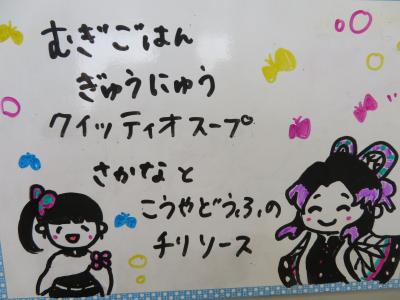 むぎごはん
ぎゅうにゅう
クイッティオスープ
さかなと
こうやどうふの
チリソース